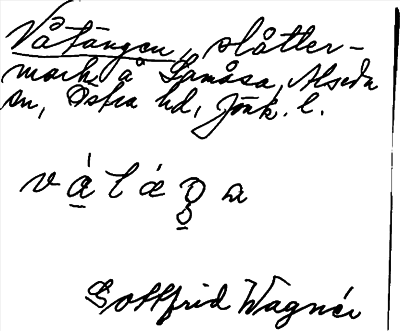 Våtängen, slåtter-
mark å Lamåsa, Alseda
sn, Östra hd, Jönk. l.
Gottfrid Wagnér